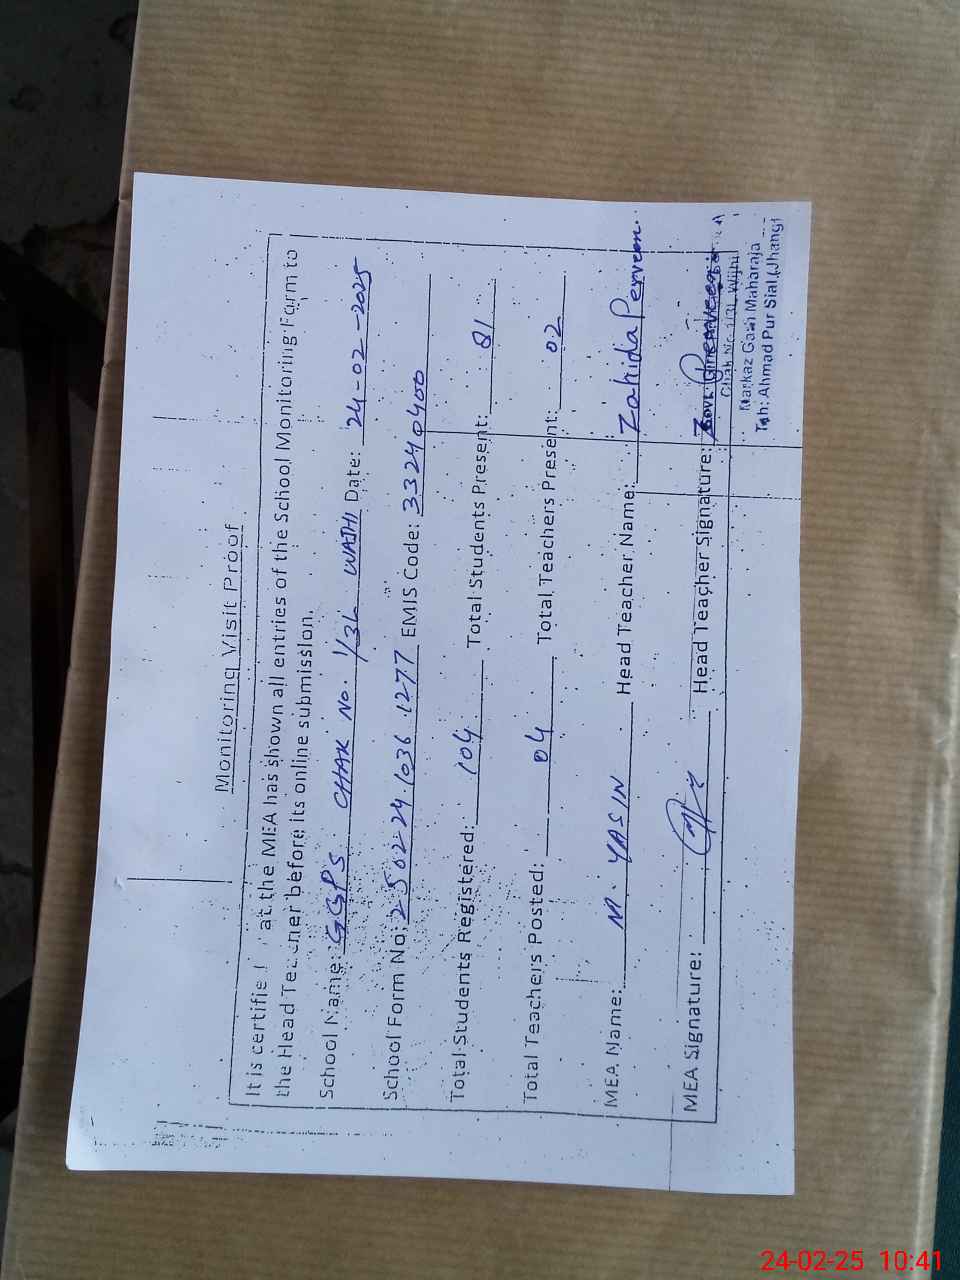 Monitoring Visit Proof
It is certified that the MEA has shown all entries of the School Monitoring Form to
the Head Teacher before its online submission.
School Name: GGPS CHAK No. 1/3L WAJHI Date: 24-02-2025
School Form No: 2502241036 1277 EMIS Code: 33240400
Total Students Registered: 104 Total Students Present: 81
Total Teachers Posted: 04 Total Teachers Present: 02
MEA Name: M. YASIN Head Teacher Name: Zahida Perveen.
MEA Signature: Head Teacher Signature:
Chak No. 1/3L
Markaz Garh Maharaja
Teh: Ahmad Pur Sial (Jhang)
24-02-25 10:41